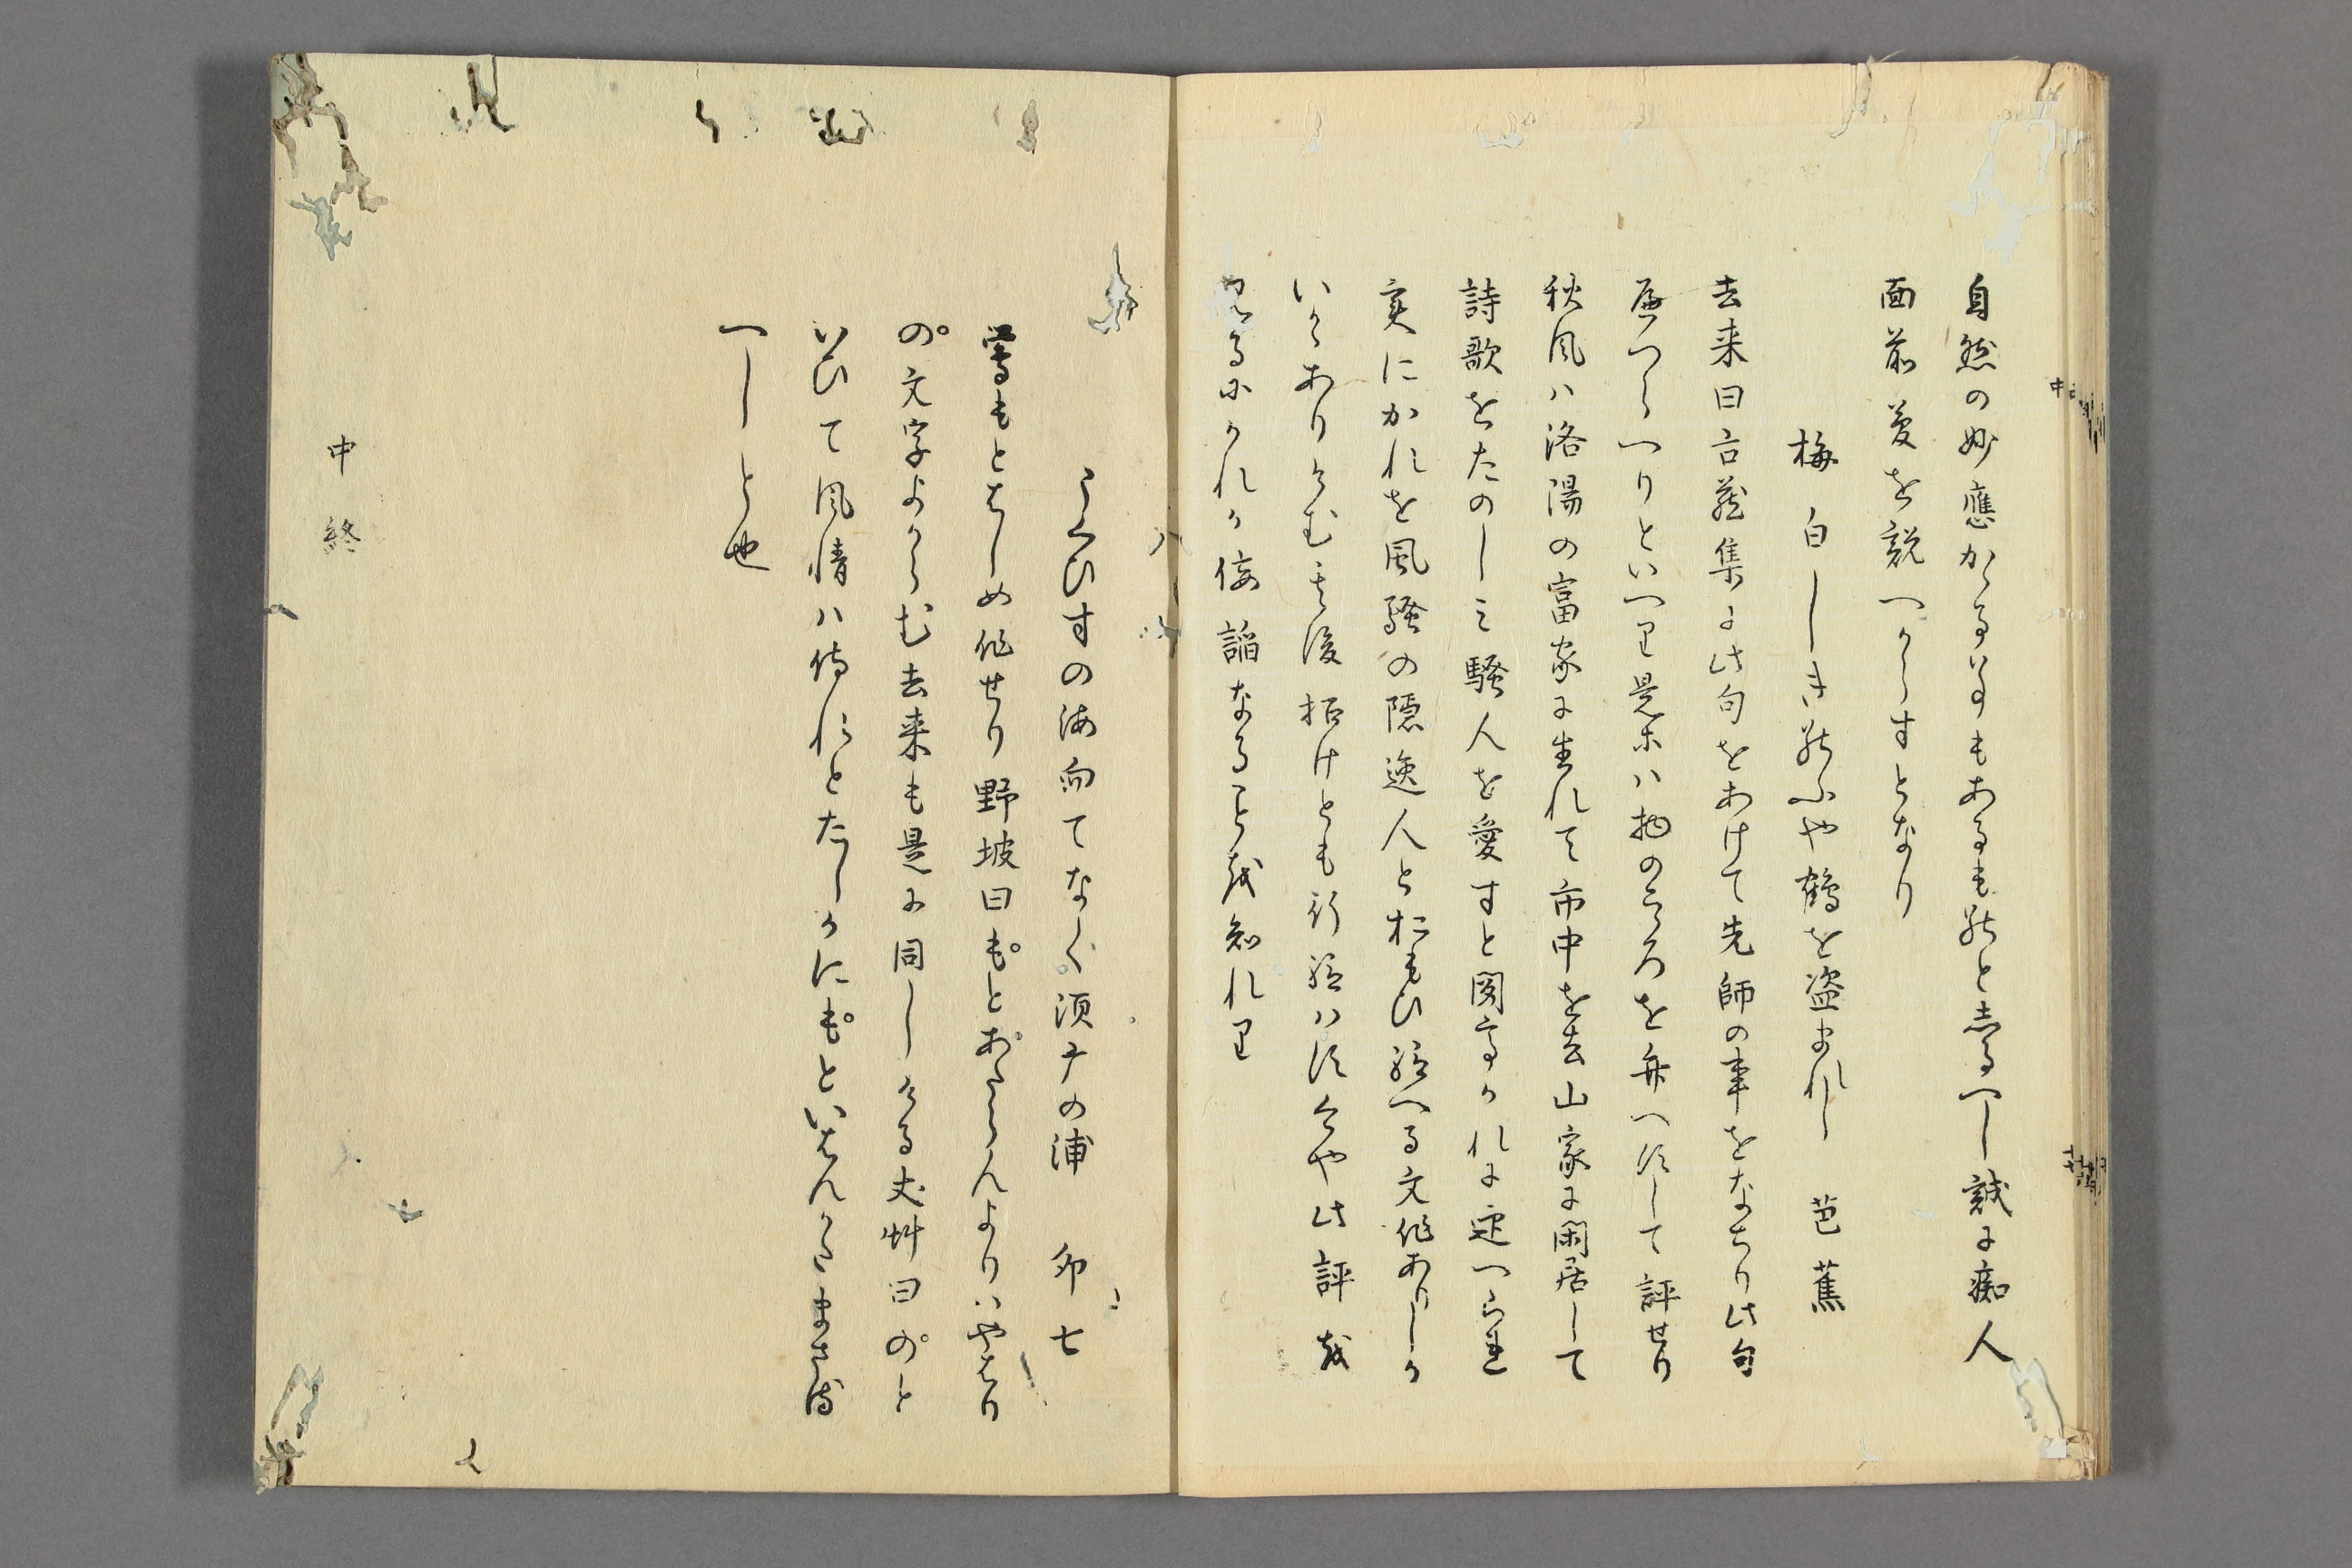 自然の妙應かゝる事もあるものと志るへし誠に痴人
面前夢を説へからすとなり
梅白しきのふや鶴を盗まれし　芭蕉
去来曰古蔵集に此句をあけて先師の事をなちり此句
へつらへりといへり是等ハ物のこゝろを弁へすして評せり
秋風ハ洛陽の富家に生れて市中を去山家に閑居して
詩歌をたのしミ騒人を愛すと聞
実にかれを風騒の隠逸人とおもひ給へる文作ありしか
いかゝありけむ其後招けとも行給ハす今や此評を
見るにかれか侫謟なることを知れり
うくひすの海向てなく須广の浦　卯七
鶯もとはしめ作せり野坡曰もとあらんよりハやはり
の文字よからむ去来も是に同しける丈艸曰のと
いひて風情ハ侍れとたしかにもといはんかたまさる
へしと也
中終